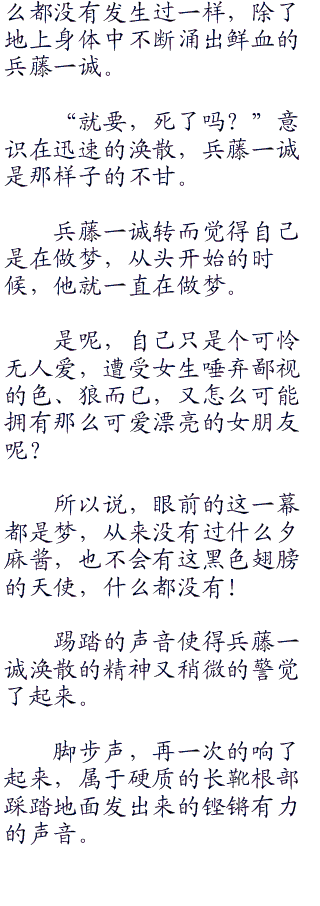 么都没有发生过一样，除了
地上身体中不断涌出鲜血的
兵藤一诚。
“就要，死了吗？”意
识在迅速的涣散，兵藤一诚
是那样子的不甘。
兵藤一诚转而觉得自己
是在做梦，从头开始的时
候，他就一直在做梦。
是呢，自己只是个可怜
无人爱，遭受女生唾弃鄙视
的色、狼而已，又怎么可能
拥有那么可爱漂亮的女朋友
呢？
所以说，眼前的这一幕
都是梦，从来没有过什么夕
麻酱，也不会有这黑色翅膀
的天使，什么都没有！
踢踏的声音使得兵藤一
诚涣散的精神又稍微的警觉
了起来。
脚步声，再一次的响了
起来，属于硬质的长靴根部
踩踏地面发出来的铿锵有力
的声音。